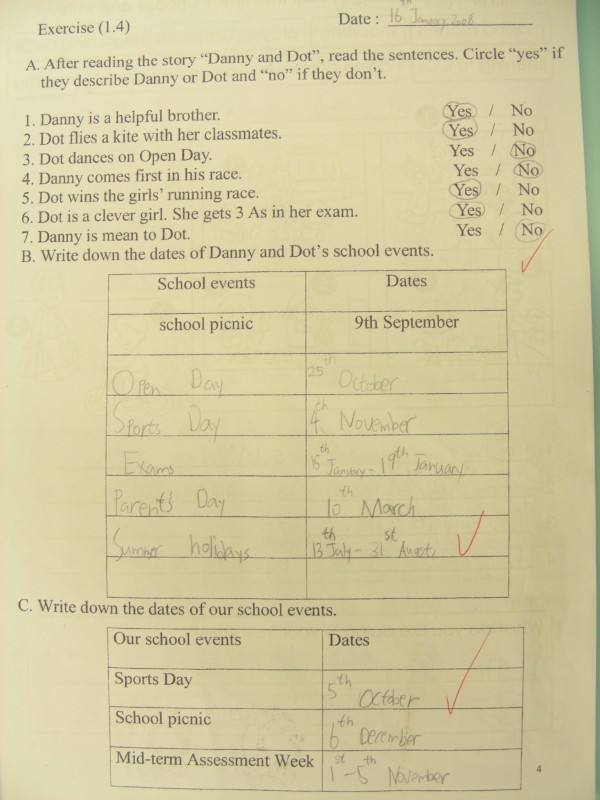 Exercise (1.4) Date : 16th January, 2008
A. After reading the story “Danny and Dot”, read the sentences. Circle “yes” if
they describe Danny or Dot and “no” if they don’t.
1. Danny is a helpful brother. Yes / No
2. Dot flies a kite with her classmates. Yes / No
3. Dot dances on Open Day. Yes / No
4. Danny comes first in his race. Yes / No
5. Dot wins the girls’ running race. Yes / No
6. Dot is a clever girl. She gets 3 As in her exam. Yes / No
7. Danny is mean to Dot. Yes / No
B. Write down the dates of Danny and Dot’s school events.
School events Dates
school picnic 9th September
Open Day 25th October
Sports Day 4th November
Exams 15th January - 19th January
Parent's Day 10th March
Summer holidays 13th July - 31st August
C. Write down the dates of our school events.
Our school events Dates
Sports Day 5th October
School picnic 6th December
Mid-term Assessment Week 1st - 5th November
4